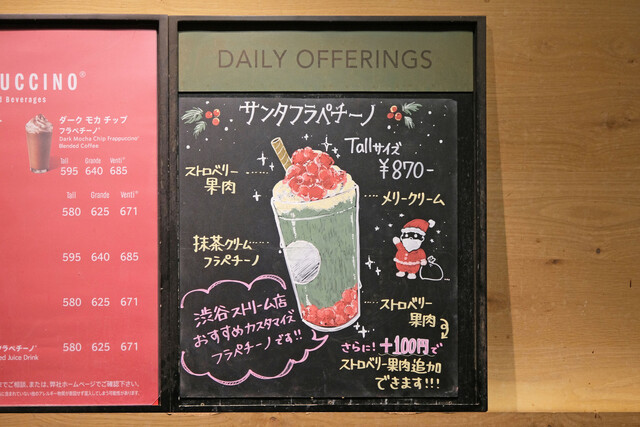 UCCINO®
d Beverages
ダーク モカ チップ
フラペチーノ®
Dark Mocha Chip Frappuccino®
Blended Coffee
Tall Grande Venti®
595 640 685
Tall Grande Venti®
580 625 671
595 640 685
580 625 671
580 625 671
フラペチーノ®
ed Juice Drink
でご相談、または、弊社ホームページでご確認下さい。
DAILY OFFERINGS
サンタフラペチーノ
Tallサイズ
¥870-
ストロベリー
果肉
メリークリーム
抹茶クリーム
フラペチーノ
ストロベリー
果肉
渋谷ストリーム店
おすすめカスタマイズ
フラペチーノです!!
さらに! +100円で
ストロベリー果肉追加
できます!!!